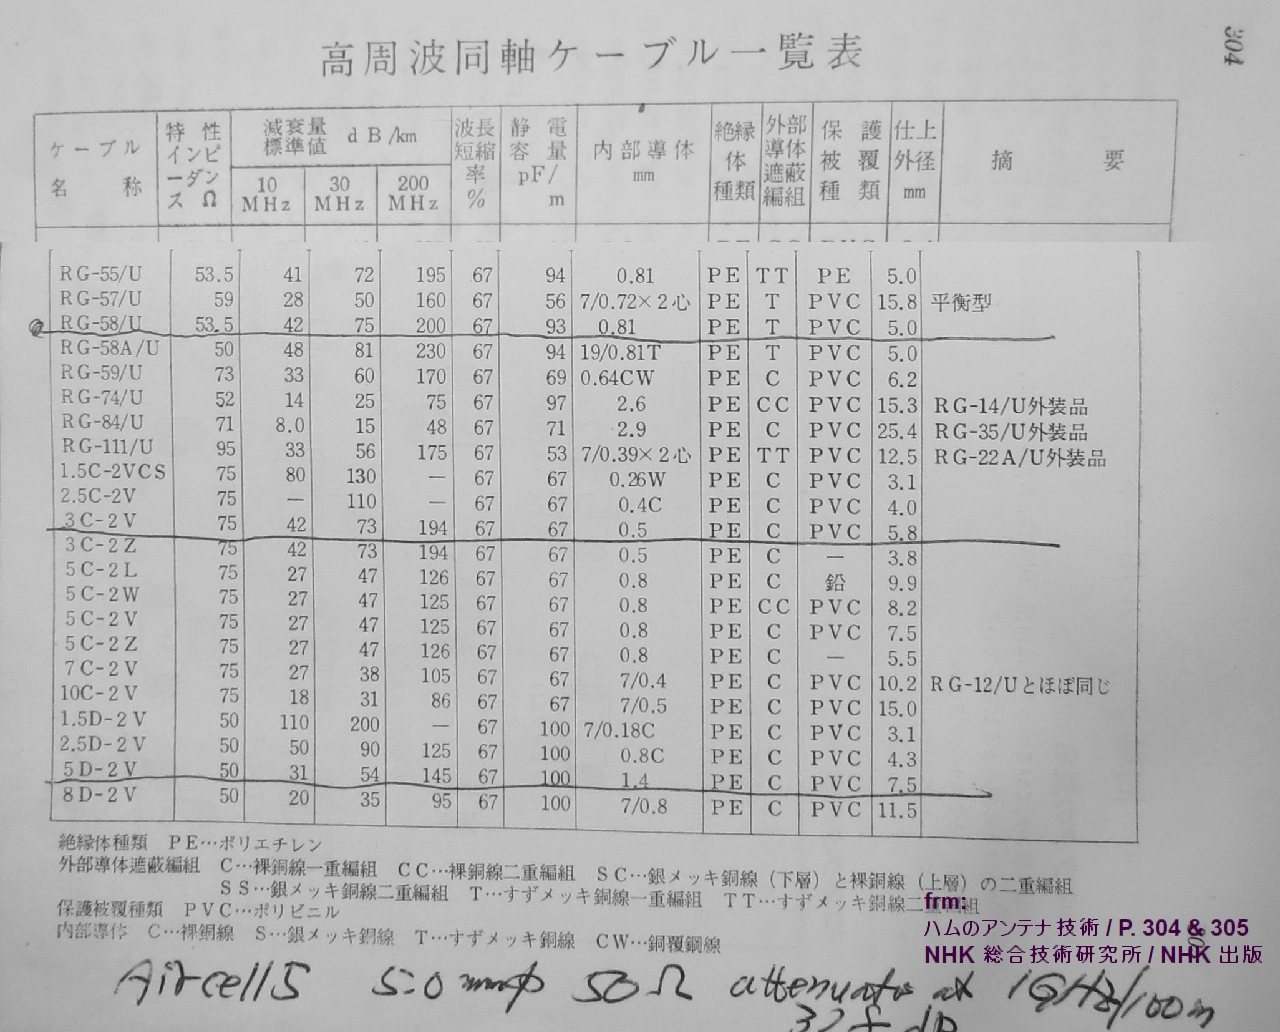 304
高周波同軸ケーブル一覧表
ケーブル名称 特性インピーダンスΩ 減衰量標準値 dB/km 10MHz 30MHz 200MHz 波長短縮率% 静電容量pF/m 内部導体mm 絶縁体種類 外部導体遮蔽編組 保護被覆種類 仕上外径mm 摘要
RG-55/U 53.5 41 72 195 67 94 0.81 PE TT PE 5.0
RG-57/U 59 28 50 160 67 56 7/0.72×2心 PE T PVC 15.8 平衡型
RG-58/U 53.5 42 75 200 67 93 0.81 PE T PVC 5.0
RG-58A/U 50 48 81 230 67 94 19/0.81T PE T PVC 5.0
RG-59/U 73 33 60 170 67 69 0.64CW PE C PVC 6.2
RG-74/U 52 14 25 75 67 97 2.6 PE CC PVC 15.3 RG-14/U外装品
RG-84/U 71 8.0 15 48 67 71 2.9 PE C PVC 25.4 RG-35/U外装品
RG-111/U 95 33 56 175 67 53 7/0.39×2心 PE TT PVC 12.5 RG-22A/U外装品
1.5C-2VCS 75 80 130 — 67 67 0.26W PE C PVC 3.1
2.5C-2V 75 — 110 — 67 67 0.4C PE C PVC 4.0
3C-2V 75 42 73 194 67 67 0.5 PE C PVC 5.8
3C-2Z 75 42 73 194 67 67 0.5 PE C — 3.8
5C-2L 75 27 47 126 67 67 0.8 PE C 鉛 9.9
5C-2W 75 27 47 125 67 67 0.8 PE CC PVC 8.2
5C-2V 75 27 47 125 67 67 0.8 PE C PVC 7.5
5C-2Z 75 27 47 126 67 67 0.8 PE C — 5.5
7C-2V 75 27 38 105 67 67 7/0.4 PE C PVC 10.2 RG-12/Uとほぼ同じ
10C-2V 75 18 31 86 67 67 7/0.5 PE C PVC 15.0
1.5D-2V 50 110 200 — 67 100 7/0.18C PE C PVC 3.1
2.5D-2V 50 50 90 125 67 100 0.8C PE C PVC 4.3
5D-2V 50 31 54 145 67 100 1.4 PE C PVC 7.5
8D-2V 50 20 35 95 67 100 7/0.8 PE C PVC 11.5
絶縁体種類 PE…ポリエチレン
外部導体遮蔽編組 C…裸銅線一重編組 CC…裸銅線二重編組 SC…銀メッキ銅線(下層)と裸銅線(上層)の二重編組
SS…銀メッキ銅線二重編組 T…すずメッキ銅線一重編組 TT…すずメッキ銅線二重編組
保護被覆種類 PVC…ポリビニル
内部導体 C…裸銅線 S…銀メッキ銅線 T…すずメッキ銅線 CW…銅覆鋼線
frm:
ハムのアンテナ技術 / P. 304 & 305
NHK 総合技術研究所 / NHK 出版
Aircell5 5.0mmφ 50Ω attenuate at 1GHz/100m
dB